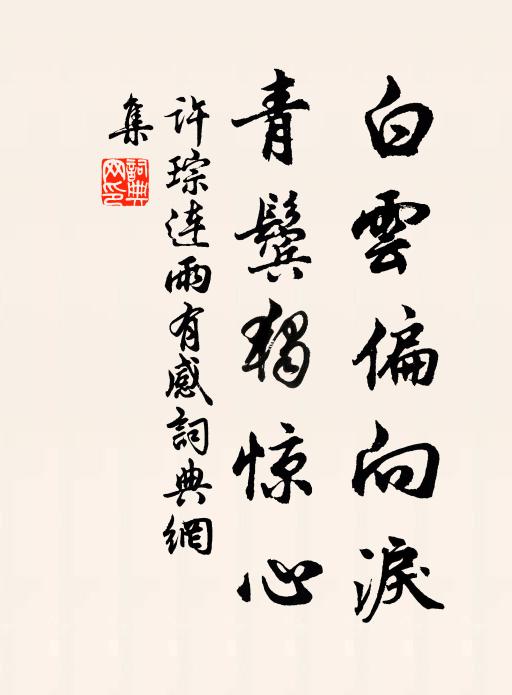 白雲偏向淚
青鬢獨惊心
許琮連雨有感詞典網
集
詞典
网印